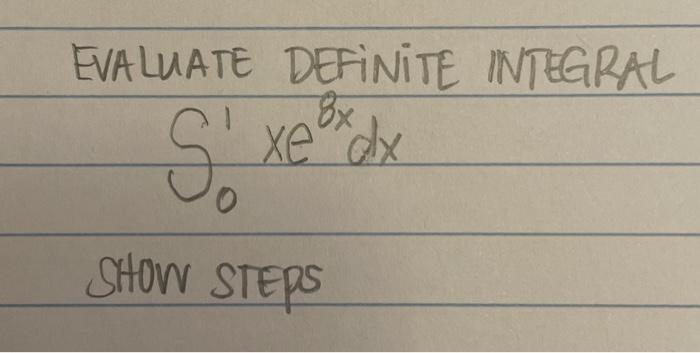 EVALUATE DEFINITE INTEGRAL
∫₀¹ xe⁸ˣdx
SHOW STEPS